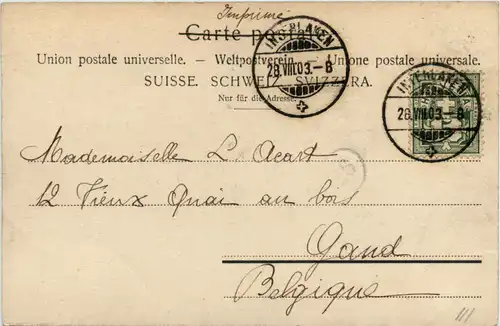 Imprimé
Carte postale
Union postale universelle. — Weltpostverein. — Unione postale universale.
SUISSE. SCHWEIZ. SVIZZERA.
Nur für die Adresse.
INTERLAKEN
28.VIII.03.-8
INTERLAKEN
28.VIII.03.-8
5
Mademoiselle L. Acart
12 Vieux Quai au bois
Gand
Belgique